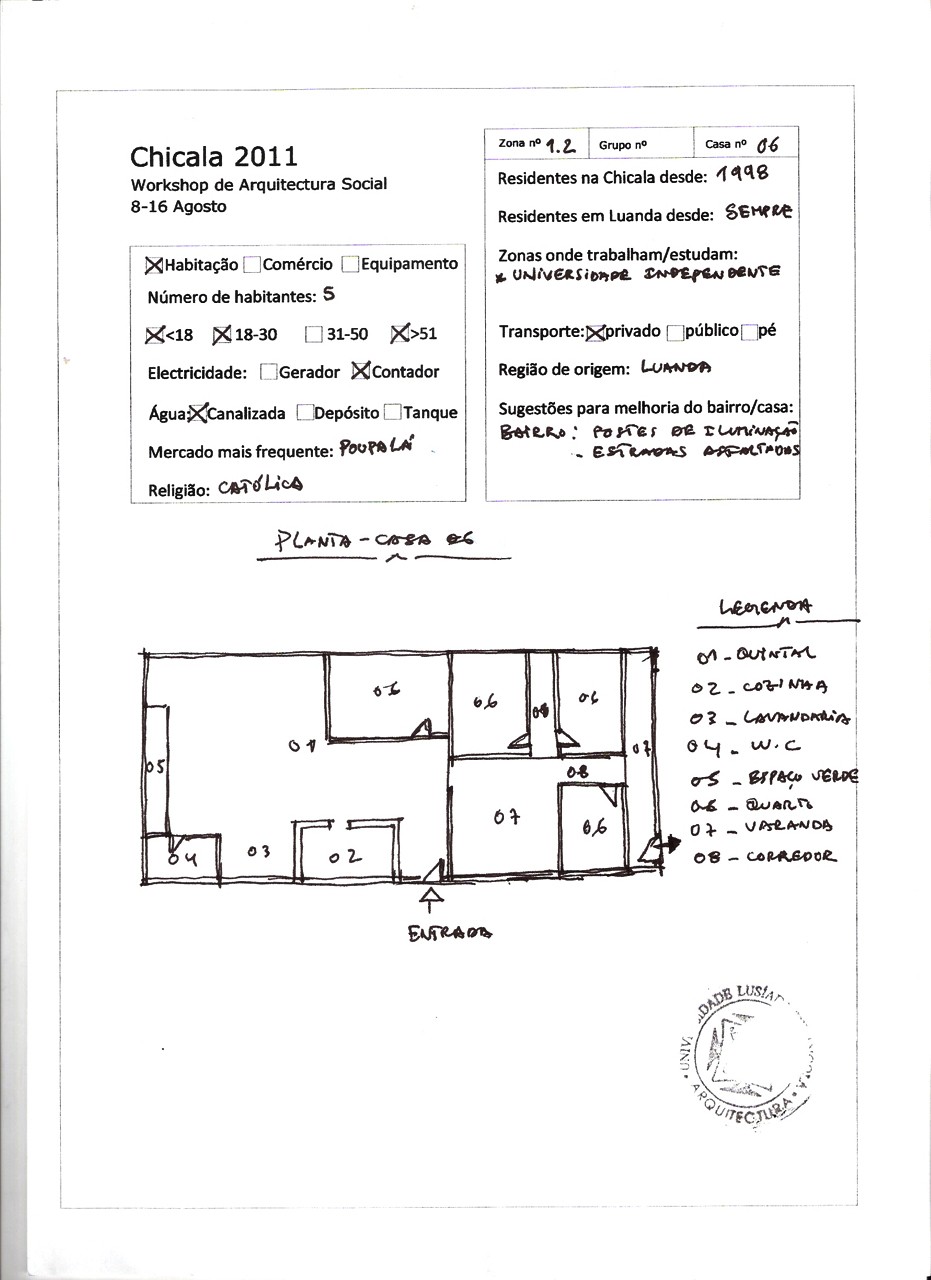 Chicala 2011
Workshop de Arquitectura Social
8-16 Agosto
Habitação Comércio Equipamento
Número de habitantes: 5
<18 18-30 31-50 >51
Electricidade: Gerador Contador
Água: Canalizada Depósito Tanque
Mercado mais frequente: POUPALÁ
Religião: CATÓLICA
Zona nº 1.2 Grupo nº Casa nº 06
Residentes na Chicala desde: 1998
Residentes em Luanda desde: SEMPRE
Zonas onde trabalham/estudam:
* UNIVERSIDADE INDEPENDENTE
Transporte: privado público pé
Região de origem: LUANDA
Sugestões para melhoria do bairro/casa:
BAIRRO: POSTES DE ILUMINAÇÃO
- ESTRADAS ASFALTADAS
PLANTA - CASA 06
LEGENDA
01 - QUINTAL
02 - COZINHA
03 - LAVANDARIA
04 - W.C
05 - ESPAÇO VERDE
06 - QUARTO
07 - VARANDA
08 - CORREDOR
06
06
08
06
01
07
05
08
07
06
04
03
02
ENTRADA
ARQUITECTURA